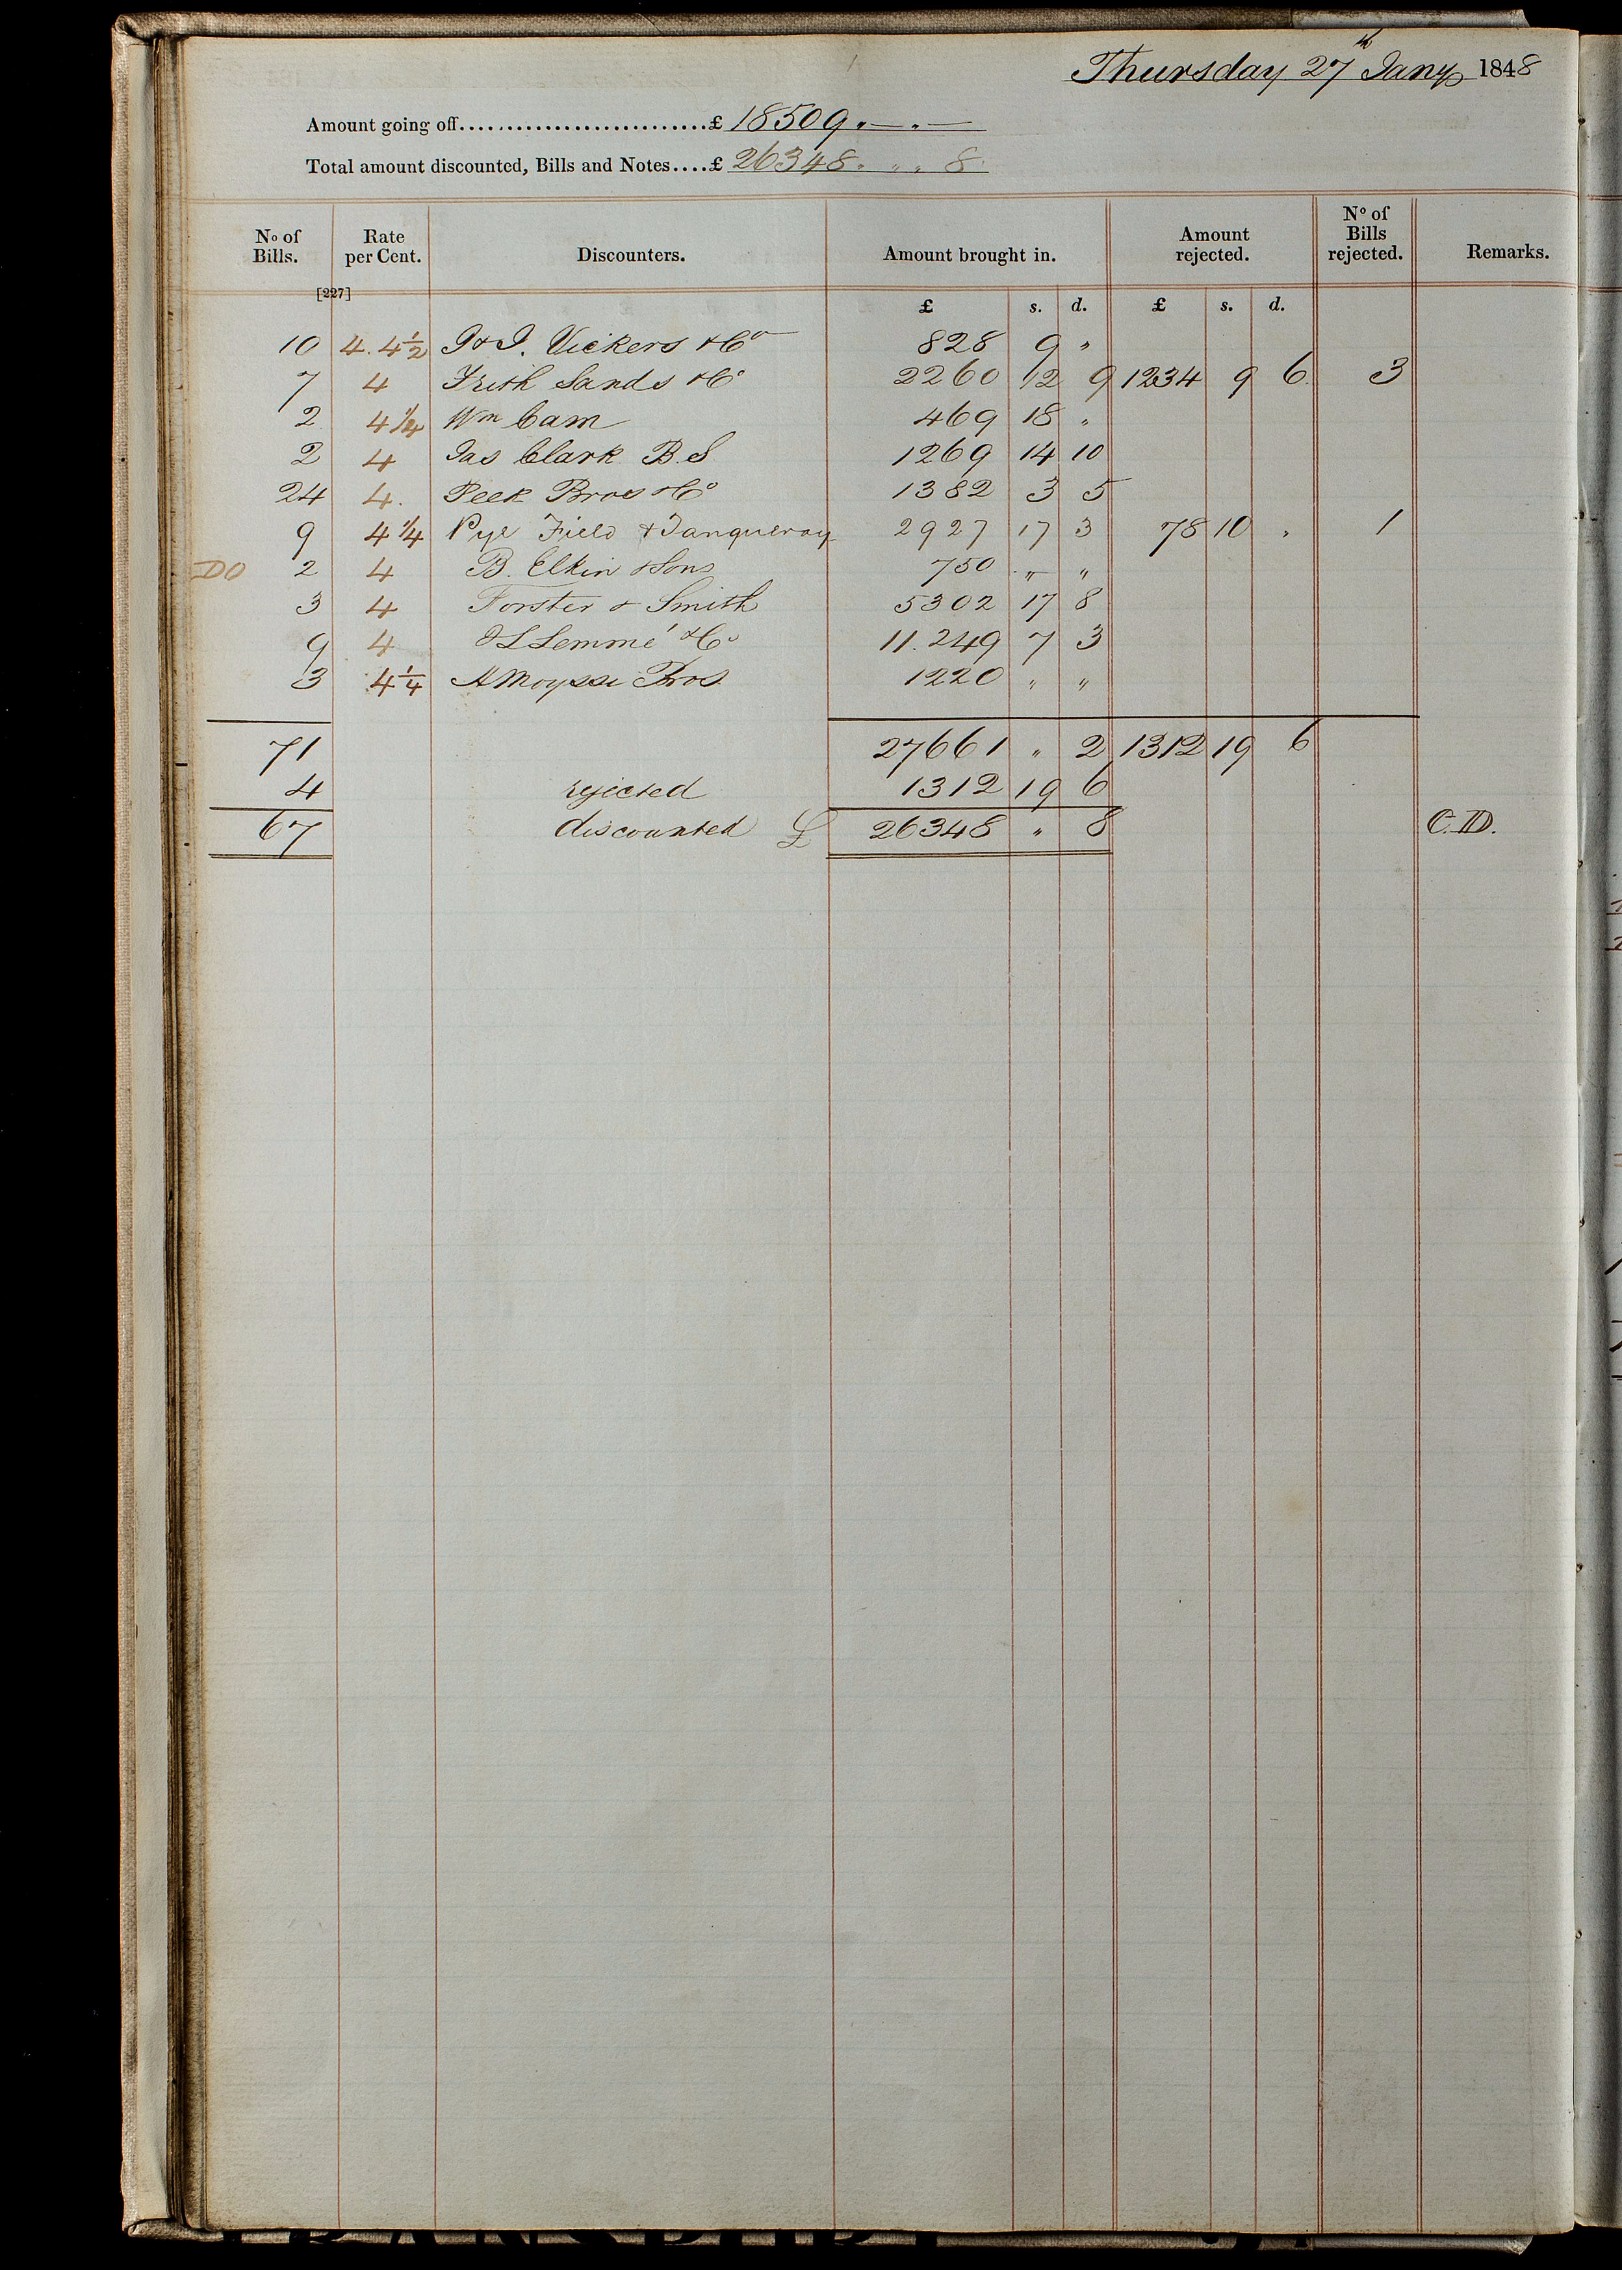 Thursday 27th Jany 1848
Amount going off..........................£ 18509 . — . —
Total amount discounted, Bills and Notes....£ 26348 . „ . 8
No of Bills. Rate per Cent. Discounters. Amount brought in. Amount rejected. No of Bills rejected. Remarks.
[227]
£ s. d. £ s. d.
10 4. 4½ J & J. Vickers & Co 828 9 „
7 4 Frith Sands & Co 2260 12 9 1234 9 6 3
2 4¼ Wm Cam 469 18 „
2 4 Jas Clark B.S 1269 14 10
24 4. Peek Bros & Co 1382 3 5
9 4¼ Pye Field & Tanqueray 2927 17 3 78 10 „ 1
DO 2 4 B. Elkin & Sons 750 „ „
3 4 Forster & Smith 5302 17 8
9 4 & L Lemmé & Co 11.249 7 3
3 4¼ Bros 1220 „ „
71 27661 „ 2 1312 19 6
4 rejected 1312 19 6
67 discounted £ 26348 „ 8 C.D.